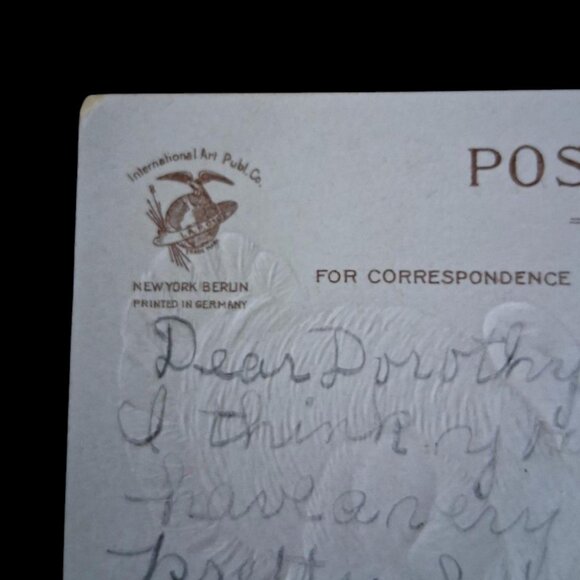 International Art Publ. Co.
POS
NEW YORK BERLIN
PRINTED IN GERMANY
FOR CORRESPONDENCE
Dear Dorothy
I think you
have a very